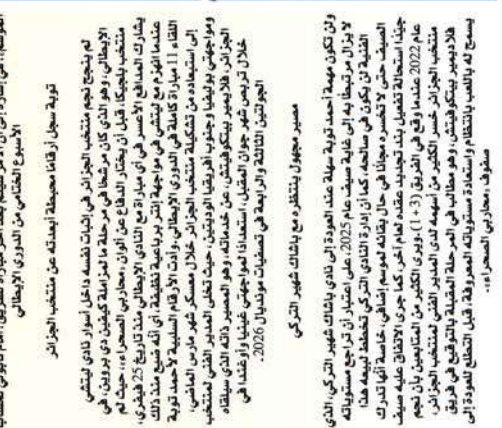 الأسبوع الختامي من الدوري الإيطالي
توبة سجل أرقامًا محبطة أبعدته عن منتخب الجزائر
لم ينجح نجم منتخب الجزائر في إثبات نفسه داخل أسوار نادي ليتشي
الإيطالي، وهو الذي كان مرشحًا في مرحلة ما لمزاملة كيفين دي بروين، في
منتخب بلجيكا، قبل أن يختار الدفاع عن ألوان "محاربي الصحراء"، حيث لم
يشارك المدافع الأعسر في أي مباراة مع النادي الإيطالي منذ تاريخ 25 فيفري،
عندما انهزم مع ليتشي في مواجهة إنتر برباعية نظيفة، أي أنه ضيع منذ ذلك
اللقاء 11 مباراة كاملة في الدوري الإيطالي، وأدت الأرقام السلبية لأحمد توبة
إلى استبعاده من تشكيلة منتخب الجزائر خلال معسكر شهر مارس الماضي،
ومواجهتي بوليفيا وجنوب أفريقيا الوديتين، حيث تخلى المدير الفني لمنتخب
الجزائر، فلاديمير بيتكوفيتش، عن خدماته، وهو المصير ذاته الذي سيلقاه
خلال تربص شهر جوان المقبل، استعدادًا لمواجهتي غينيا وأوغندا في
الجولتين الثالثة والرابعة في تصفيات مونديال 2026.
مصير مجهول ينتظره مع باشاك شهير التركي
ولن تكون مهمة أحمد توبة سهلة عند العودة إلى نادي باشاك شهير التركي، الذي
لا يزال مرتبطًا به إلى غاية صيف عام 2025، على اعتبار أن تراجع مستوياته
الفنية لن يكون في صالحه، كما أن إدارة النادي التركي تخطط لبيعه هذا
الصيف حتى لا تخسره مجانًا في حال بقائه لموسم إضافي، خاصة أنها تدرك
جيدًا استحالة تفعيل بند تجديد عقده لعام آخر، كما جرى الاتفاق عليه صيف
عام 2022 عندما وقع في الفريق (3+1)، ويرى الكثير من المتابعين بأن نجم
منتخب الجزائر خسر الكثير من أسهمه لدى المدير الفني لمنتخب الجزائر،
فلاديمير بيتكوفيتش، وهو مطالب في المرحلة المقبلة بالتوقيع في فريق
يسمح له باللعب بانتظام واستعادة مستوياته المعروفة، قبل التطلع للعودة إلى
صفوف "محاربي الصحراء".